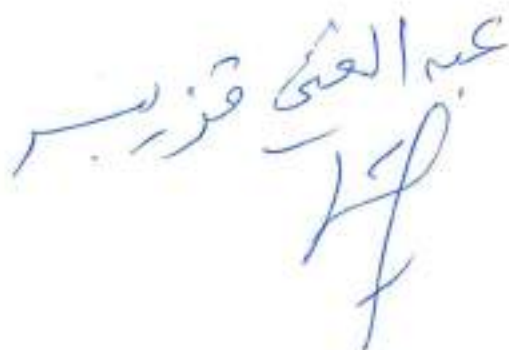 عبد الغني قزيبر